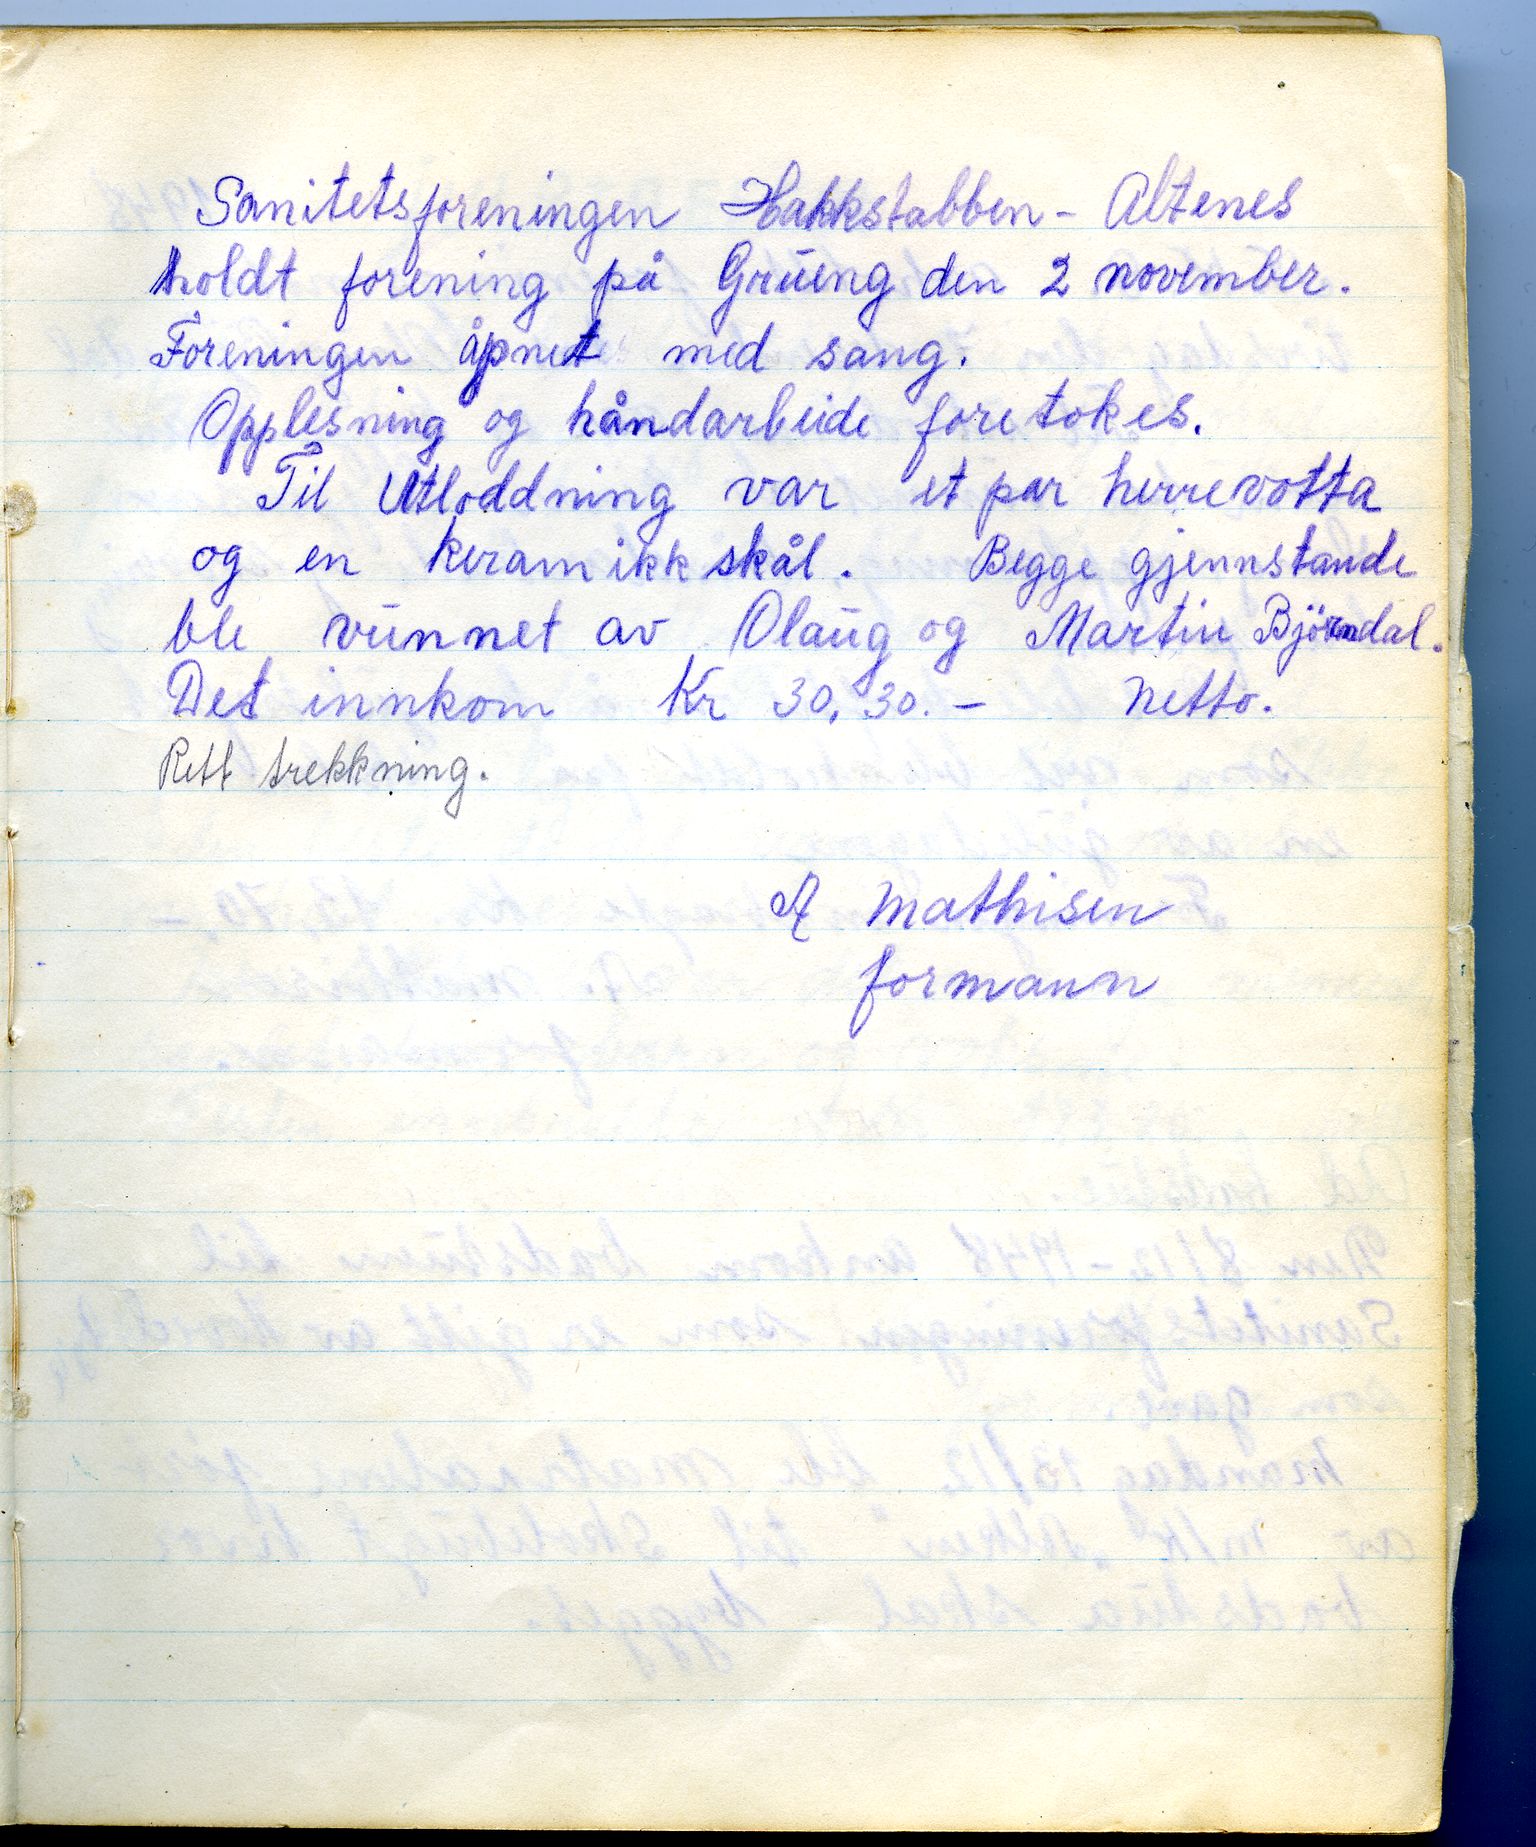 Sanitetsforeningen Hakkstabben - Altenes
holdt forening på Grüeng den 2 november.
Foreningen åpnet med sang.
Opplesning og håndarbeide foretokes.
Til Utloddning var et par herrevotta
og en keramikk skål. Begge gjennstande
ble vünnet av Olaüg og Martin Björndal.
Det innkom Kr 30,30.- netto.
Rett trekkning.
A Mathisen
formann